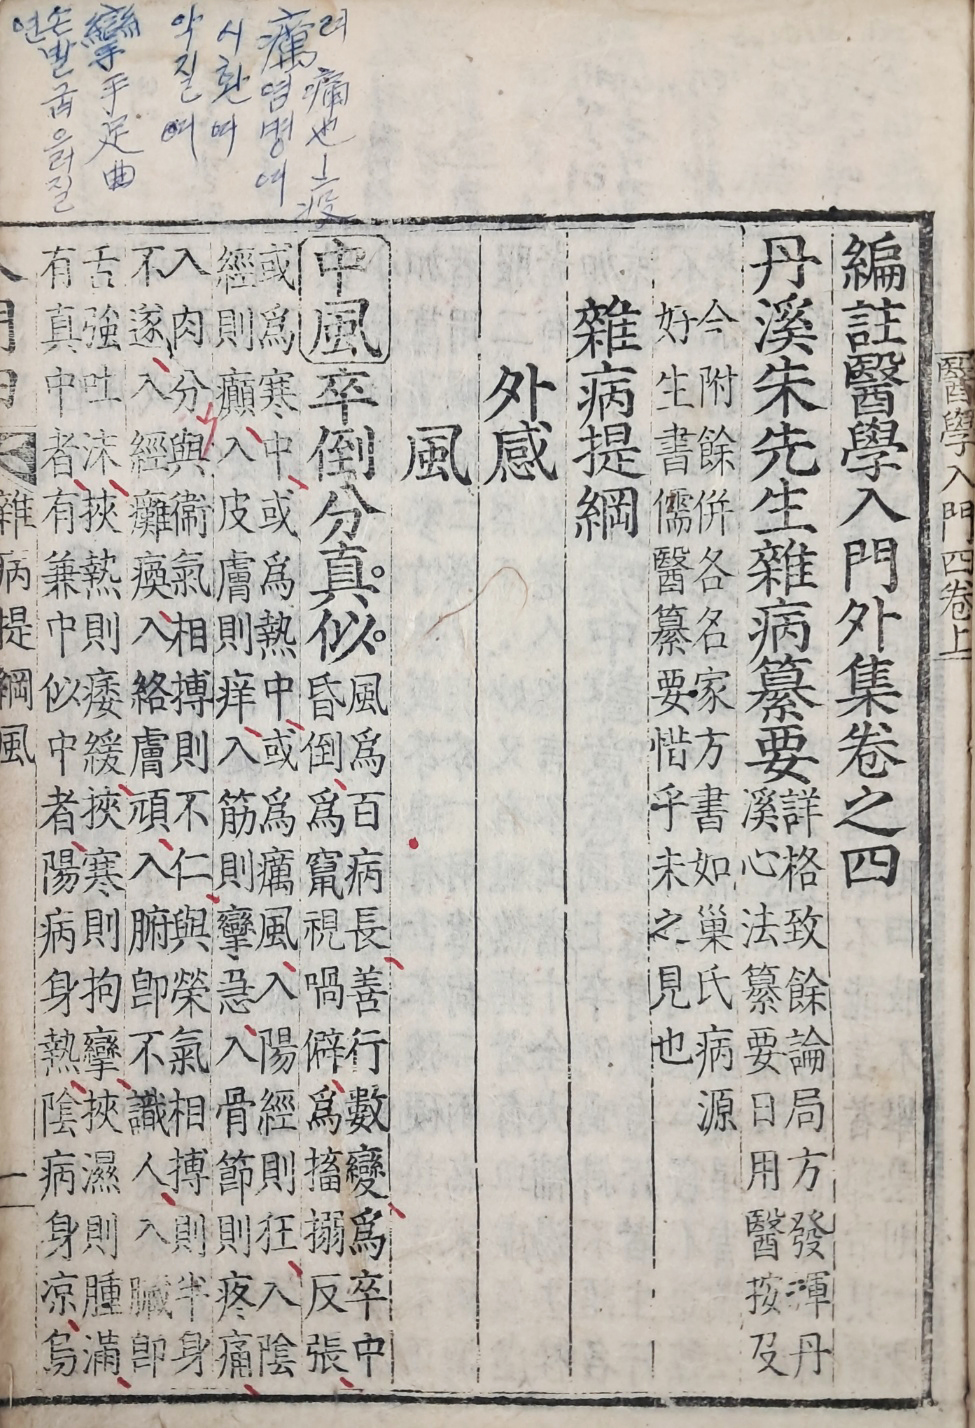 려痛也一疫
癘염병여
시환여
악질여
攣手足曲
손발굽을러질
연
醫學入門四卷上
編註醫學入門外集卷之四
丹溪朱先生雜病纂要
詳格致餘論局方發渾丹
溪心法纂要日用醫按及
今附餘併各名家方書如巢氏病源
好生書儒醫纂要惜乎未之見也
雜病提綱
外感
風
中風卒倒分真似
風爲百病長善行數變爲卒中
昏倒爲竄視喎僻爲搐搦反張
或爲寒中或爲熱中或爲癘風入陽經則狂入陰
經則癲入皮膚則痒入筋則攣急入骨節則疼痛
入肉分與衞氣相搏則不仁與榮氣相搏則半身
不遂入經癱瘓入絡膚頑入腑卽不識人入臟卽
舌強吐沫挾熱則痿緩挾寒則拘攣挾濕則腫滿
有真中者有兼中似中者陽病身熱陰病身凉烏
雜病提綱風
一